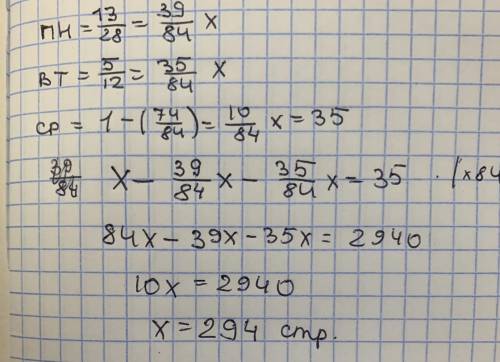 пн = 13/28 = 39/84 x
вт = 5/12 = 35/84 x
ср = 1 - (74/84) = 10/84 x = 35
x - 39/84 x - 35/84 x = 35 · | x84
84x - 39x - 35x = 2940
10x = 2940
x = 294 стр.